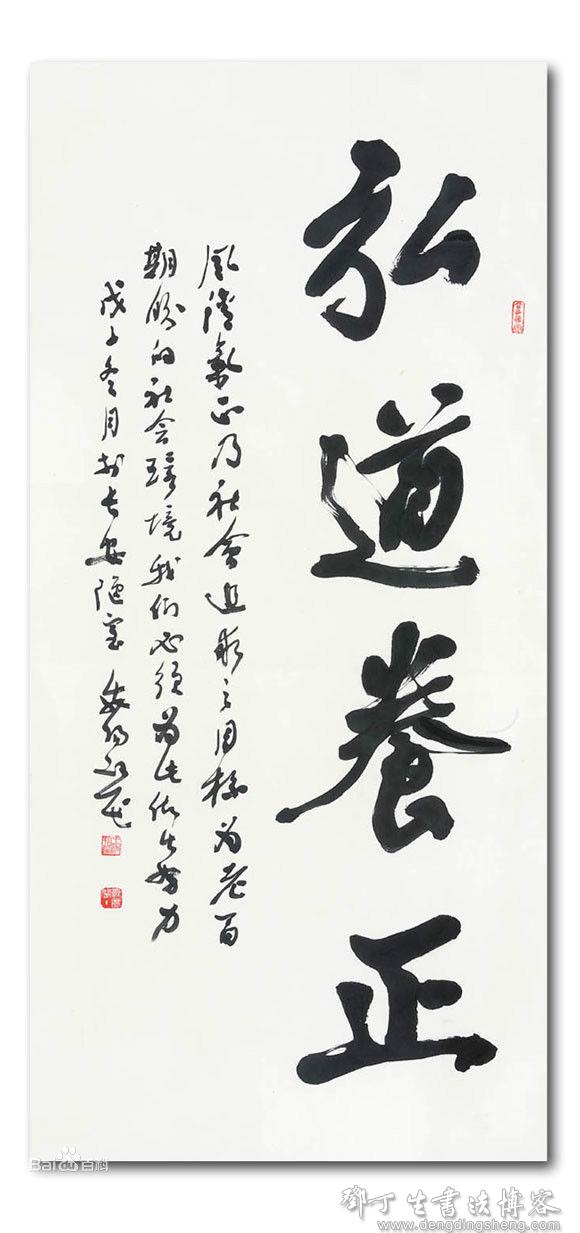 弘道養正
風清氣正乃社會追求之目標为老百
期盼的社会環境我们必须为此做出努力
戊子冬月於长安陋室
Bai百科
鄧丁生書法博客
www.dengdingsheng.com